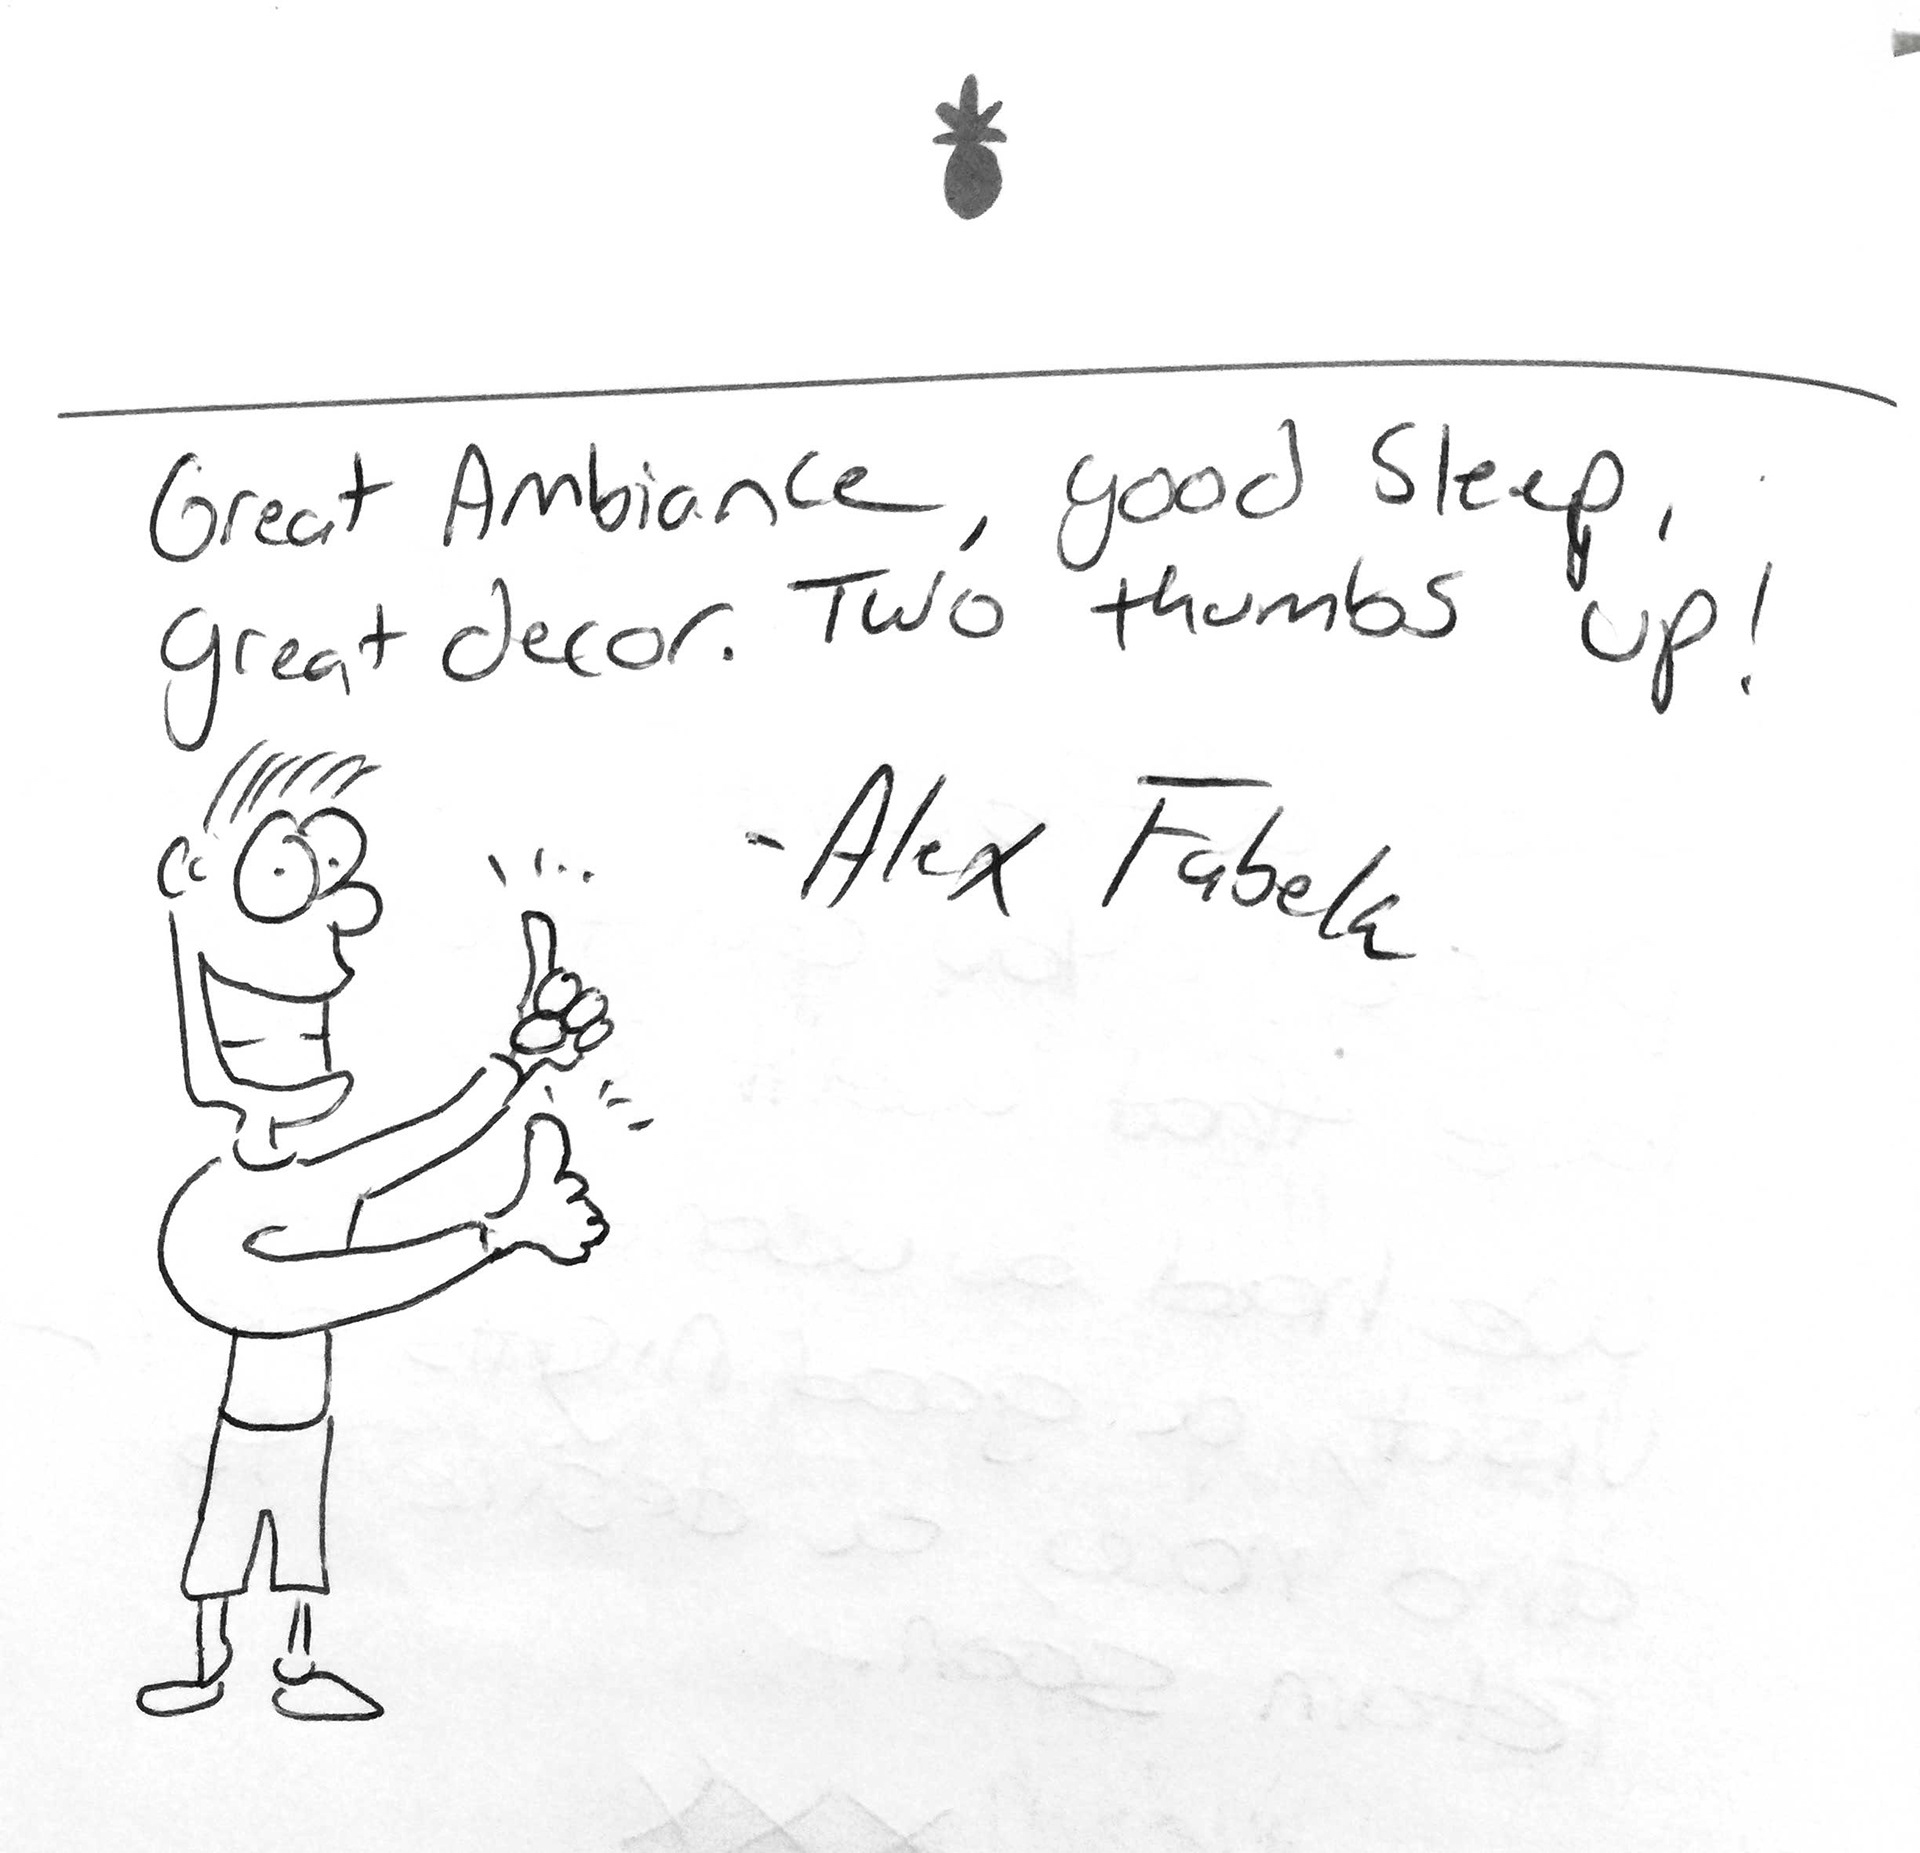 Great Ambiance, good Sleep,
great decor. Two thumbs up!
-Alex Fabela